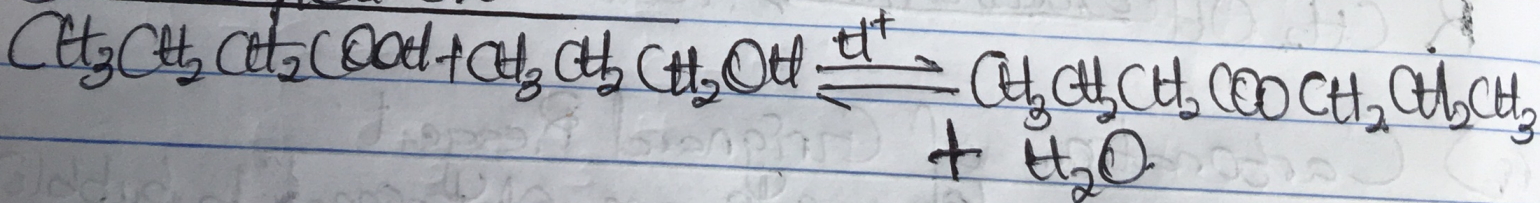 CH₃CH₂CH₂COOH + CH₃CH₂CH₂OH ⇌ H⁺ CH₃CH₂CH₂COOCH₂CH₂CH₃
+ H₂O